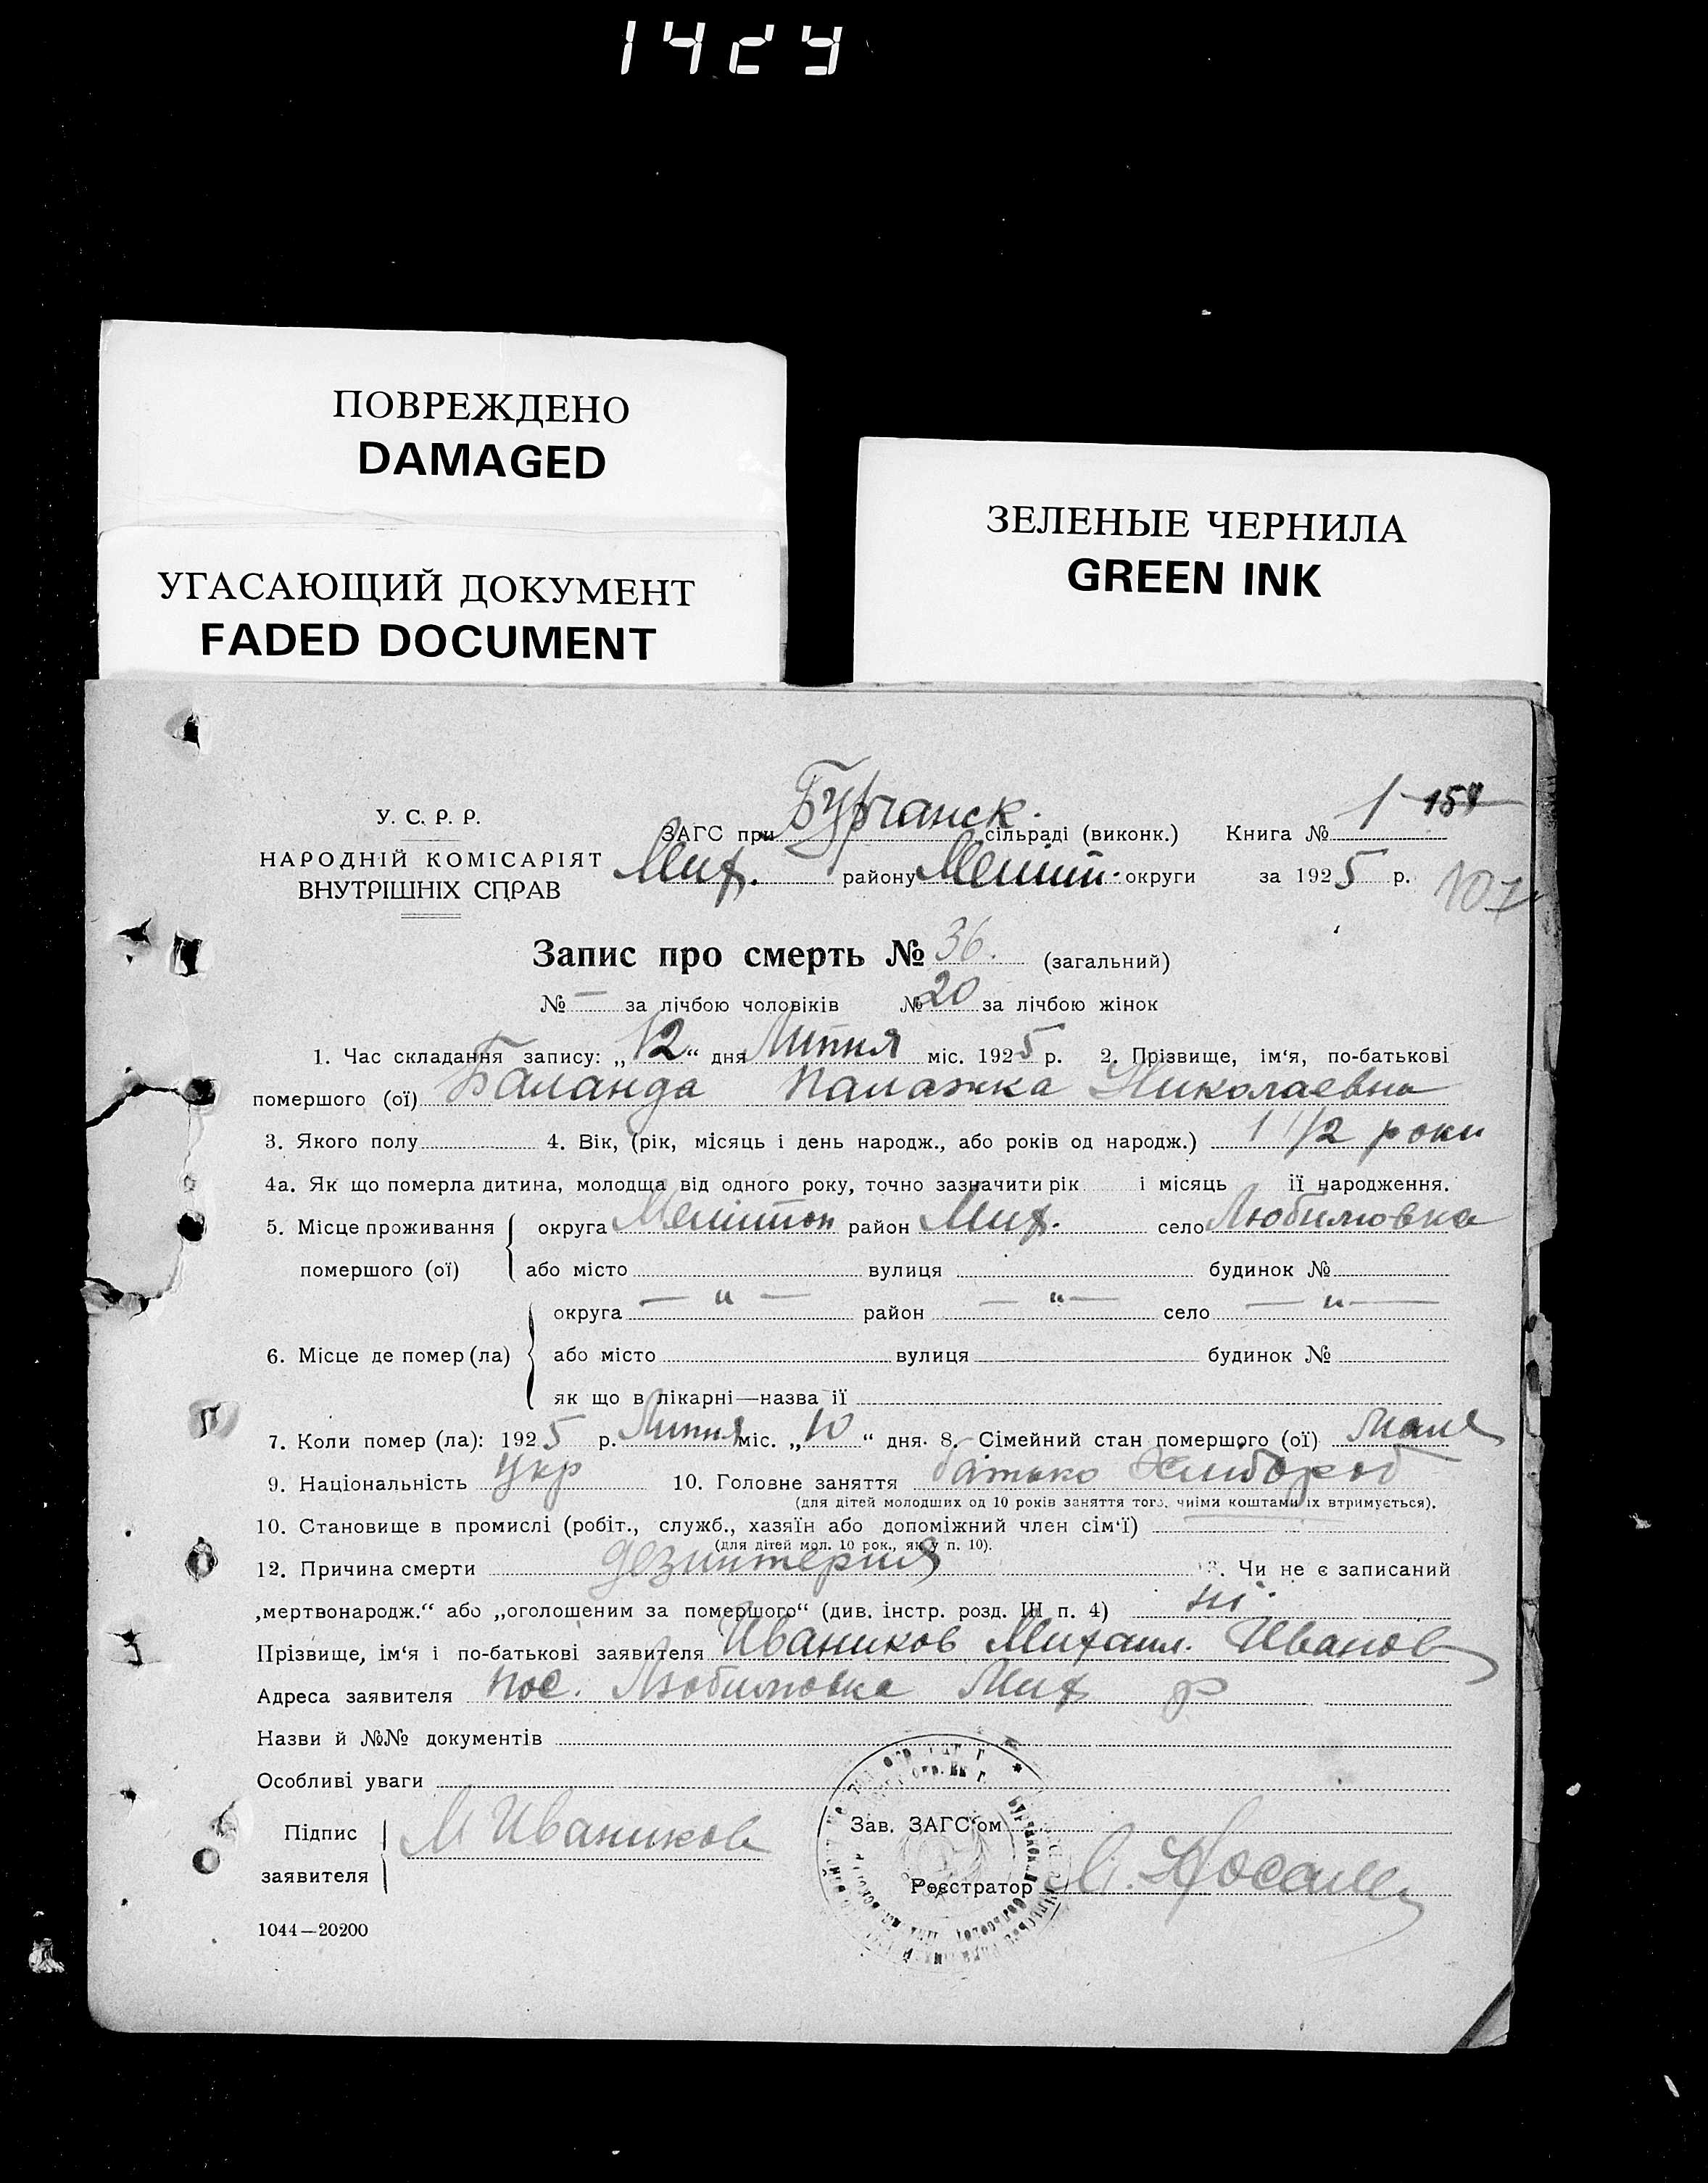 ПОВРЕЖДЕНО
DAMAGED
УГАСАЮЩИЙ ДОКУМЕНТ
FADED DOCUMENT
ЗЕЛЕНЫЕ ЧЕРНИЛА
GREEN INK
У. С. Р. Р.
НАРОДНІЙ КОМІСАРІЯТ
ВНУТРІШНІХ СПРАВ
ЗАГС при Бурчанск. сільраді (виконк.) Книга № 1
Мих. району Меліт. округи за 1925 р. 107
Запис про смерть № 36. (загальний)
№ — за лічбою чоловіків № 20 за лічбою жінок
1. Час складання запису: „12“ дня Липня міс. 1925 р. 2. Прізвище, ім‘я, по-батькові
помершого (ої) Баланда Палажка Николаевна
3. Якого полу 4. Вік, (рік, місяць і день народж., або років од народж.) 1 1/2 роки
4а. Як що померла дитина, молодща від одного року, точно зазначити рік і місяць її народження.
5. Місце проживання округа Мелітоп район Мих. село Любимовка
помершого (ої) або місто вулиця будинок №
округа — „ — район — „ — село — „ —
6. Місце де помер (ла) або місто вулиця будинок №
як що в лікарні—назва її
7. Коли помер (ла): 1925 р. Липня міс. „10“ дня. 8. Сімейний стан помершого (ої) мале
9. Національність Укр 10. Головне заняття батько Хлибороб
(для дітей молодших од 10 років заняття того, чиїми коштами їх втримується).
10. Становище в промислі (робіт., служб., хазяїн або допоміжний член сім‘ї)
(для дітей мол. 10 рок., як у п. 10).
12. Причина смерти дезинтерия . Чи не є записаний
„мертвонародж.“ або „оголошеним за помершого“ (див. інстр. розд. III п. 4) ні
Прізвище, ім‘я і по-батькові заявителя Иваников Михаил. Иванов
Адреса заявителя пос. Любимовка Мих р
Назви й №№ документів
Особливі уваги
Підпис заявителя М Иваников
Зав. ЗАГС‘ом
Реєстратор
1044—20200